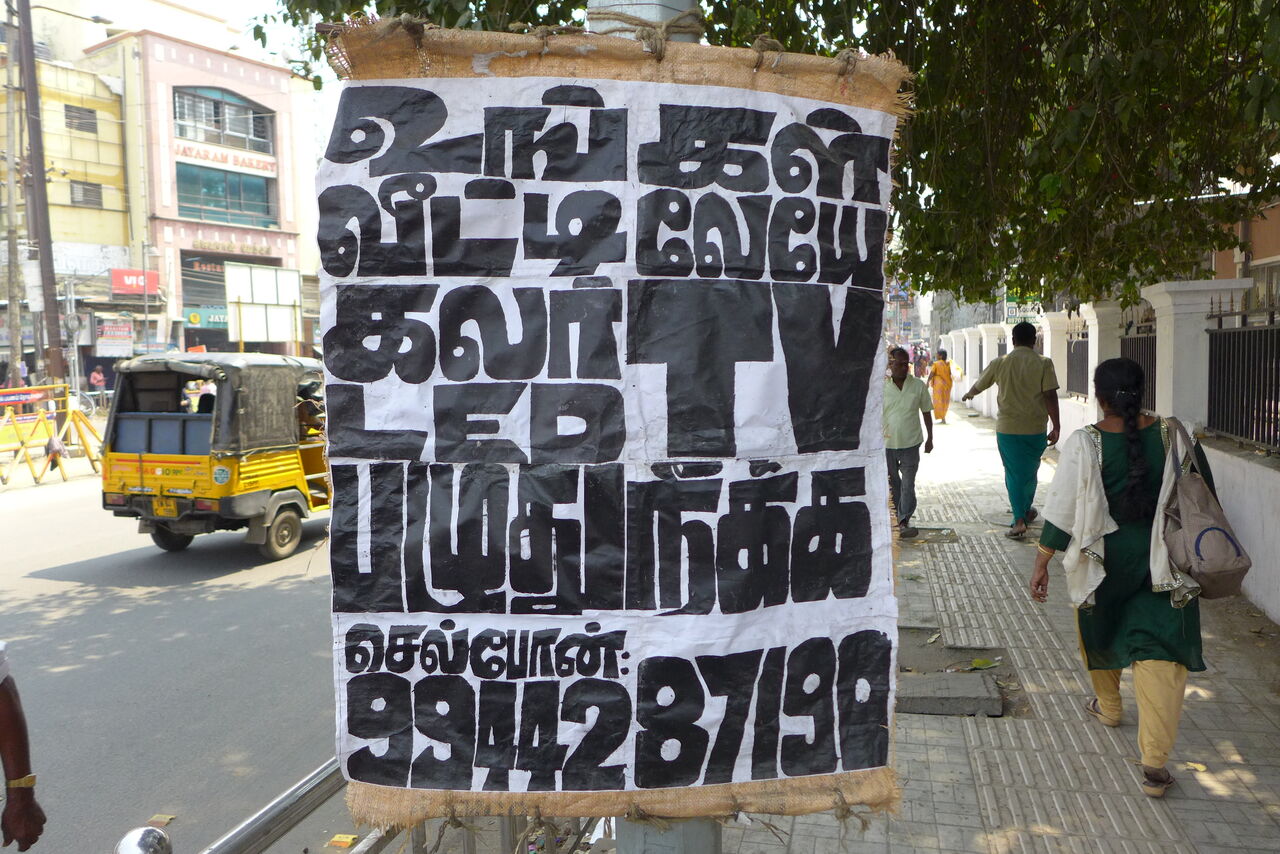 உங்கள்
வீட்டிலேயே
கலர் TV
LED
பழுதுநீக்க
செல்போன்:
99442 87190
JAYARAM BAKERY